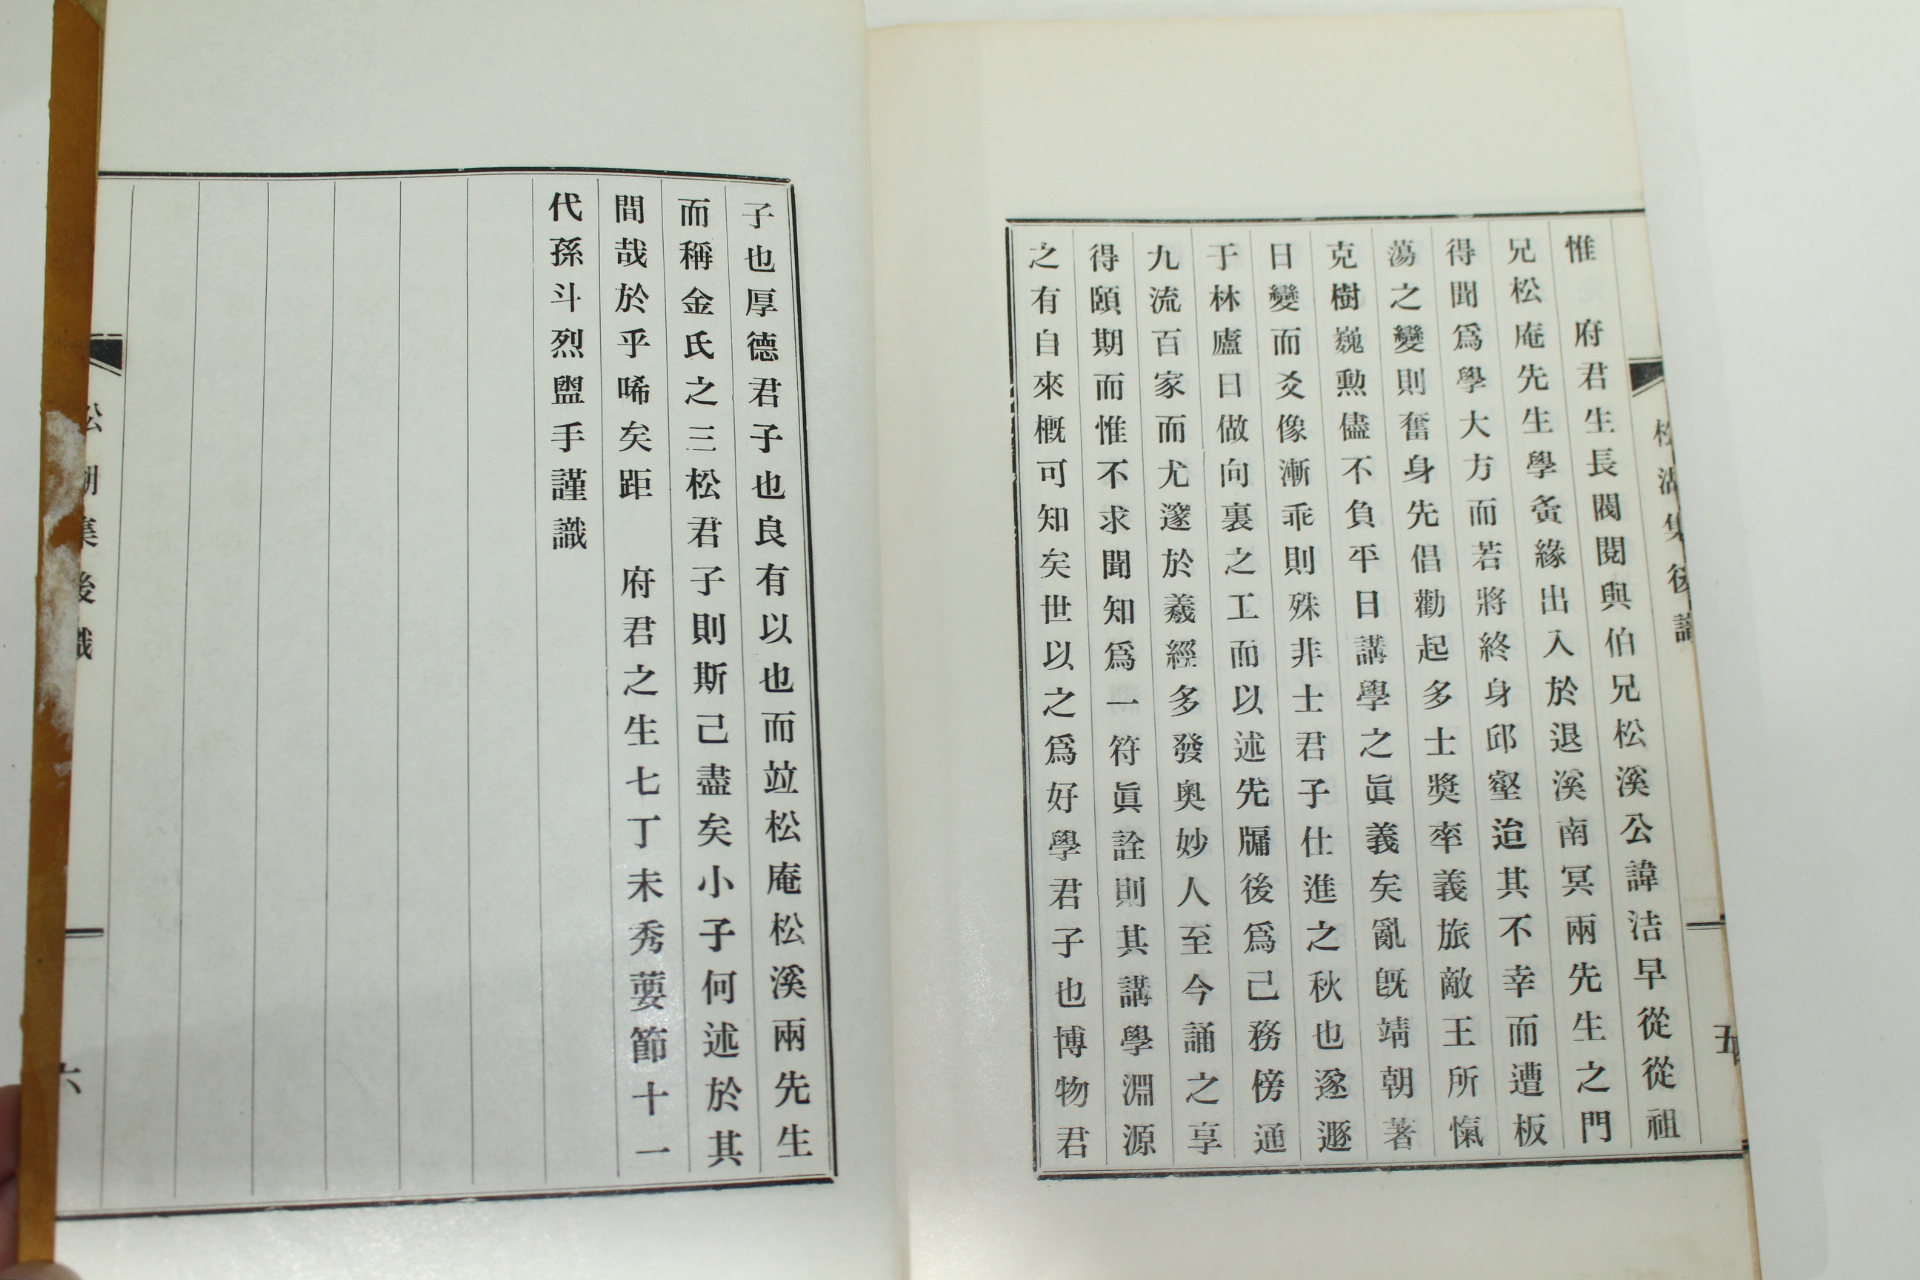 惟　府君生長閥閱與伯兄松溪公諱洁早從從祖
兄松庵先生學夤緣出入於退溪南冥兩先生之門
得聞爲學大方而若將終身邱壑迨其不幸而遭板
蕩之變則奮身先倡勸起多士奬率義旅敵王所愾
克樹巍勲儘不負平日講學之眞義矣亂旣靖朝著
日變而爻像漸乖則殊非士君子仕進之秋也遂遯
于林廬日做向裏之工而以述先牖後爲己務傍通
九流百家而尤邃於羲經多發奥妙人至今誦之享
得頤期而惟不求聞知爲一符眞詮則其講學淵源
之有自來槪可知矣世以之爲好學君子也博物君
松湖集後識
五
子也厚德君子也良有以也而竝松庵松溪兩先生
而稱金氏之三松君子則斯己盡矣小子何述於其
間哉於乎唏矣距　府君之生七丁未秀葽節十一
代孫斗烈盥手謹識
松湖集後識
六